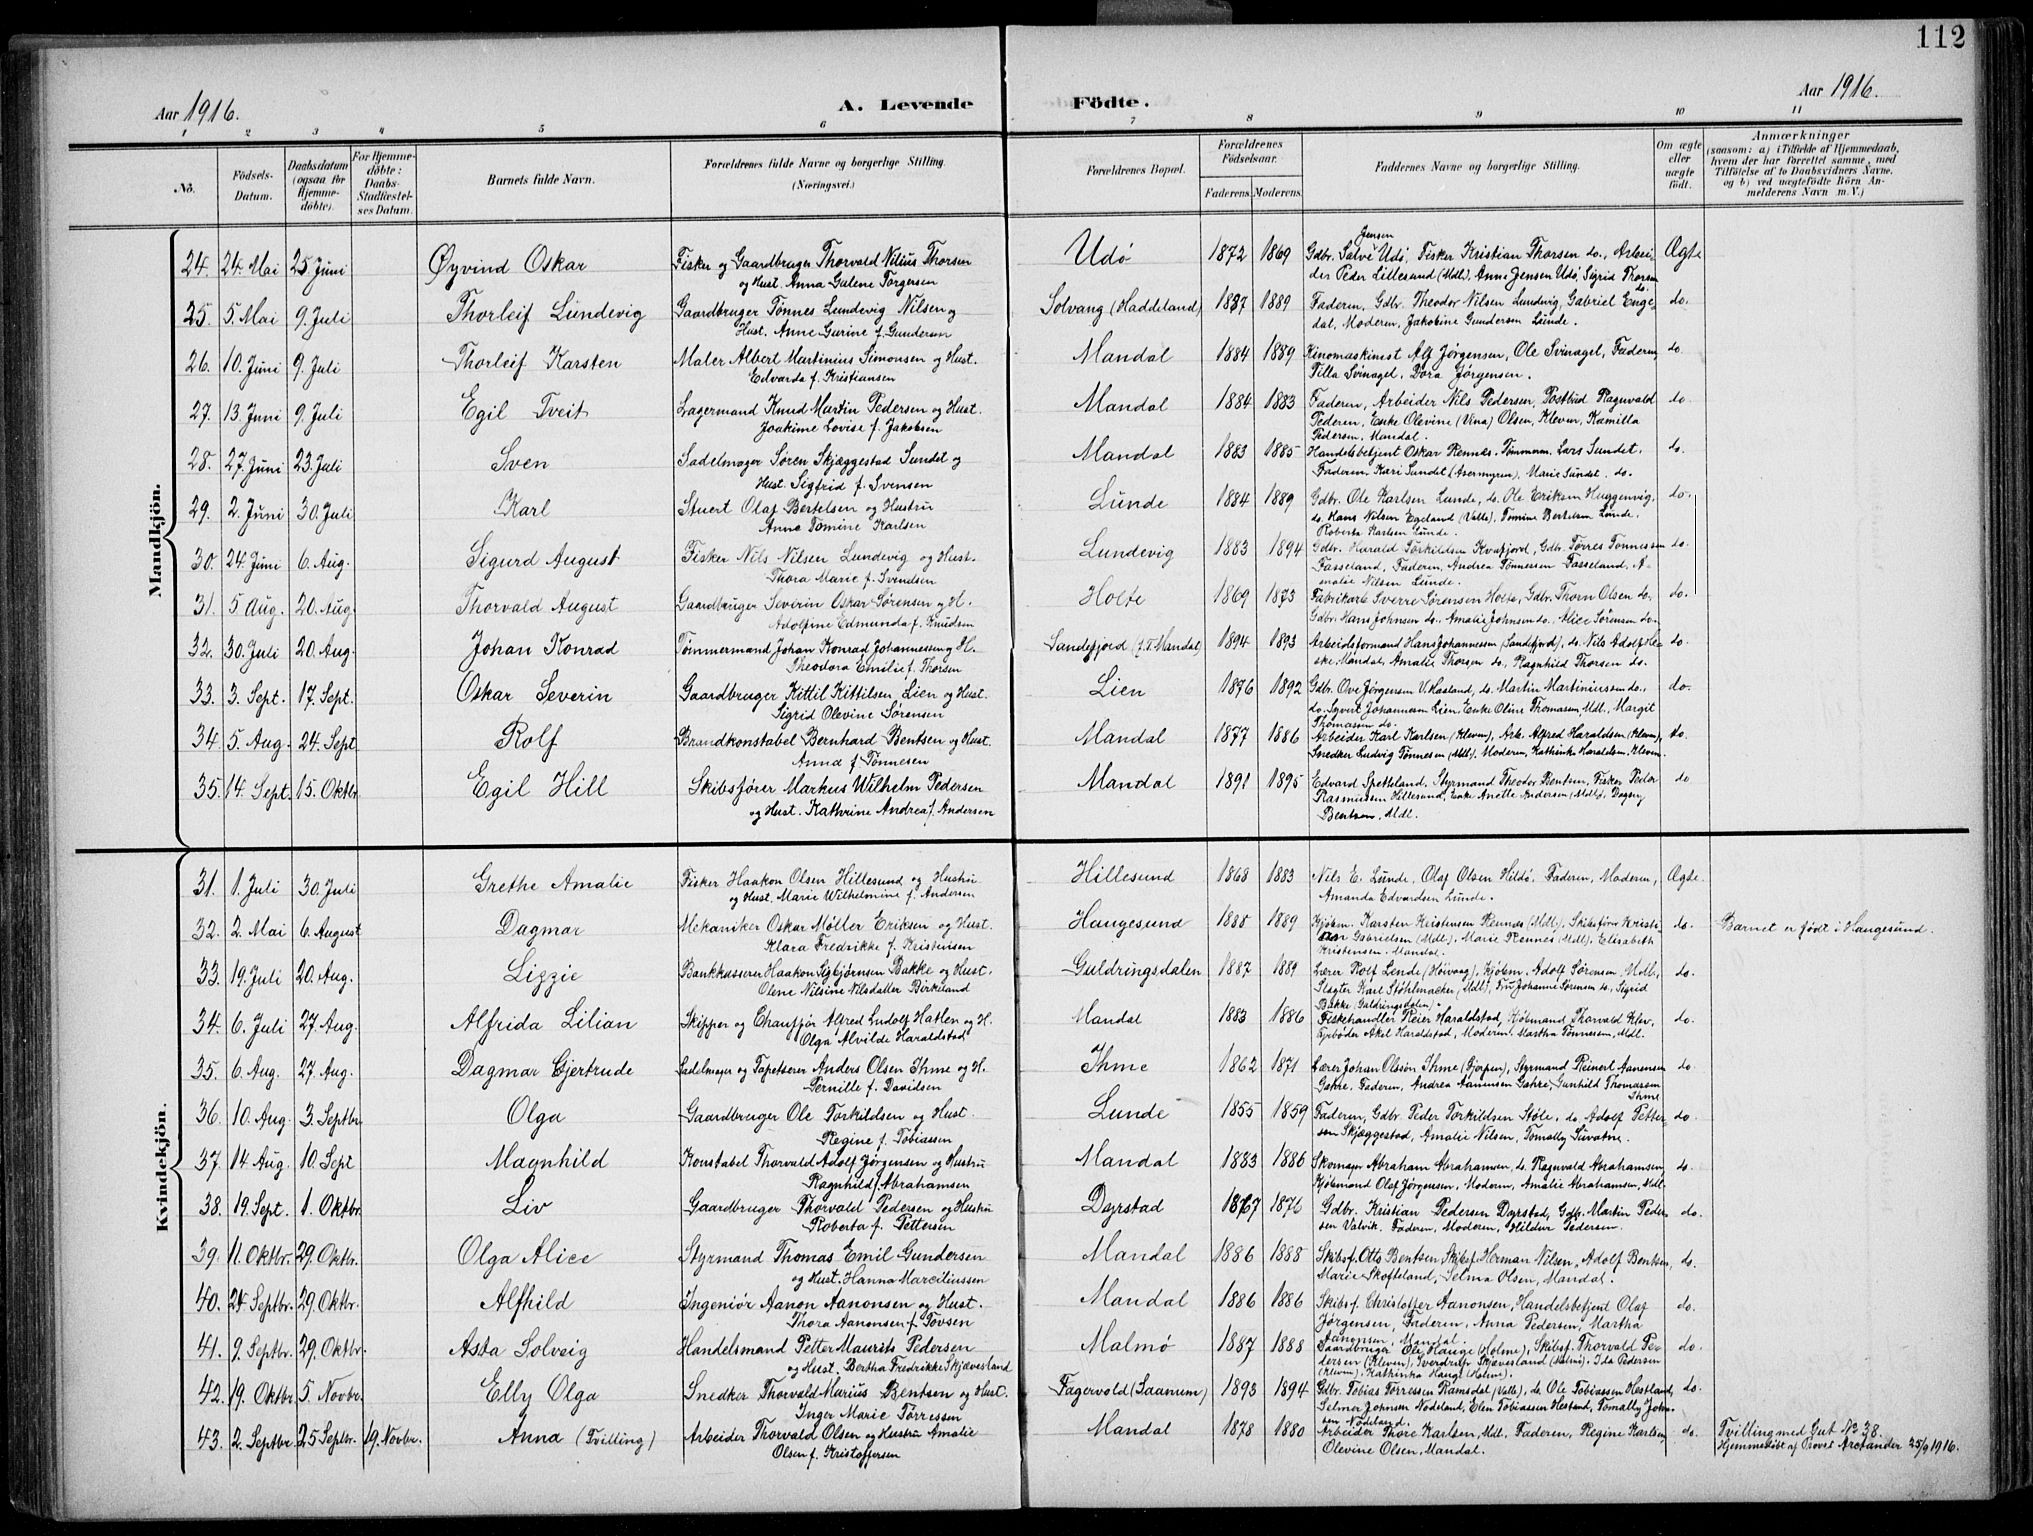 112
Aar 1916.
A. Levende Födte.
Aar 1916.
1 2 3 4 5 6 7 8 9 10 11
No.
Födsels-Datum.
Daabsdatum (ogsaa for Hjemme-döbte).
For Hjemme-döbte: Daabs-Stadfæstel-ses Datum.
Barnets fulde Navn.
Forældrenes fulde Navne og borgerlige Stilling. (Næringsvei.)
Forældrenes Bopæl.
Forældrenes Födselsaar.
Faderens. Moderens.
Faddernes Navne og borgerlige Stilling.
Om ægte eller uægte födt.
Anmærkninger (saasom: a) i Tilfælde af Hjemmedaab, hvem der har forrettet samme, med Tilföielse af to Daabsvidners Navne, og b) ved uægtefödte Börn An-melderens Navn m. V.)
Mandkjön.
24. 24. Mai 25. Juni Øyvind Oskar Fisker og Gaardbruger Thorvald Nilius Thorsen Udø 1872 1869 Gdbr. Salve Jensen Udø, Fisker Kristian Thorsen do., Arbei- Ægte
og Hust. Anna Galene Torgersen der Peder Lillesund (Mdl), Anne Jensen Udø, Sigrid Thorsen do.
25. 5. Mai 9. Juli Thorleif Lundevig Gaardbruger Tönnes Lundevig Nilsen og Solvang (Haddeland) 1887 1889 Faderen, Gdbr. Theodor Nilsen Lundevig, Gabriel Enge- do.
Hust. Anne Gurine f. Gundersen dal, Moderen, Jakobine Gundersen Lunde.
26. 10. Juni 9. Juli Thorleif Karsten Maler Albert Martinius Simonsen og Hust. Mandal 1884 1889 Kinomaskinist Alf Jørgensen, Ole Svinagel, Faderen, do
Edvarda f. Kristiansen Tilla Svinagel, Dora Jørgensen.
27. 13. Juni 9. Juli Egil Tveit Lagermand Knud Martin Pedersen og Hust. Mandal 1884 1883 Faderen, Arbeider Nils Pedersen, Postbud Ragnvald do
Joakime Lovise f. Jakobsen Pedersen, Enke Olevine (Una) Olsen, Kleven, Kamilla
Pedersen, Mandal.
28. 27. Juni 23. Juli Sven Sadelmager Søren Skjæggestad Sundet og Mandal 1883 1885 Handelsbetjent Oskar Rennes, Tömmerm. Lars Sundet, do.
Hust. Sigfrid f. Svensen Faderen, Kari Sundet, Marie Sundet. do.
29. 2. Juni 30. Juli Karl Stuert Olaf Bertelsen og Hustru Lunde 1884 1889 Gdbr. Ole Karlsen Lunde, do. Ole Eriksen Huggenvig, do.
Anne Tomine Karlsen do. Hans Nilsen Egeland (Valle), Tomine Bertelsen Lunde.
Roberta Karlsen Lunde.
30. 24. Juni 6. Aug. Sigurd August Fisker Nils Nilsen Lundevig og Hust. Lundevig 1883 1894 Gdbr. Harald Torkildsen Kvafjord, Gdbr. Torres Tönnessen do.
Thora Marie f. Svendsen Fasseland, Faderen, Andrea Tönnessen Fasseland, A-
malie Nilsen Lunde.
31. 5. Aug. 20. Aug. Thorvald August Gaardbruger Severin Oskar Sørensen og H. Holte 1869 1873 Fabrikarb. Sverre Sørensen Holte, Gdbr. Thorn Olsen do, do.
Adolfine Edmunda f. Knudsen Gdbr. Hans Johnsen do., Amalie Johnsen do., Alice Sørensen do.
32. 30. Juli 20. Aug. Johan Konrad Tömmermand Johan Konrad Johannesen og H. Sandefjord (f.T. Mandal) 1894 1893 Arbeidsformand Hans Johannesen (Sandefjord), do. Nils Adolf do
Theodora Emilie f. Thorsen Mandal, Amalie Thorsen do, Ragnhild Thorsen do.
33. 3. Sept. 17. Sept. Oskar Severin Gaardbruger Kittil Kittilsen Lien og Hust. Lien 1876 1892 Gdbr. Ove Jørgensen V. Hasland, do. Martin Martiniussen do., do.
Sigrid Olevine Sørensen do. Syvert Johannessen Lien, Enke Oline Thomasen, Mdl, Margit
Thomassen do.
34. 5. Aug. 24. Sept Rolf Brandkonstabel Bernhard Bentsen og Hust. Mandal 1877 1886 Arbeider Karl Karlsen (Kleven), Arb. Alfred Haraldsen (Kleven), do.
Anna f. Tönnesen Snedker Ludvig Tönnesen (Mdl), Moderen, Kathinka Haraldsen, Kleven.
35. 14. Sept. 15. Oktbr. Egil Hill Skibsfører Markus Wilhelm Pedersen Mandal 1891 1895 Edvard Spetteland, Styrmand Theodor Bentsen, Fisker Peder do
og Hust. Kathrine Andrea f. Andersen Rasmussen Hillesund, Enke Anette Andersen (Mdl), Dagny
Bentsen, Mdl.
Kvindekjön.
31. 1. Juli 30. Juli Grethe Amalie Fisker Haakon Olsen Hillesund og Hustru Hillesund 1868 1883 Nils E. Lunde, Olaf Olsen Hildø, Faderen, Moderen, Ægte
og Hust. Marie Wilhelmine f. Andersen Amanda Edvardsen Lunde.
32. 2. Mai 6. August Dagmar Mekaniker Oskar Møller Eriksen og Hust. Haugesund 1885 1889 Kjøbm. Karsten Kristensen Rennes (Mdl), Skibsfører Kristi- do. Barnet er født i Haugesund.
Klara Fredrikke f. Kristensen an Gabrielsen (Mdl), Marie Rennes (Mdl), Elisabeth
Kristensen, Mandal.
33. 19. Juli 20. Aug. Lizzie Bankkasserer Haakon Sigbjørnsen Bakke og Hust. Guldringsdalen 1887 1889 Lærer Rolf Lende (Høivaag), Kjøbm. Adolf Sørensen, Mdl, do.
Olene Nilsine Nilsdatter Birkeland Slagter Karl Støhlmacker (Mdl), Fru Johanne Sørensen do, Sigrid
Bakke (Guldringsdalen).
34. 6. Juli 27. Aug. Alfrida Lilian Skipper og Chauffør Alfred Ludolf Hatlen og H. Mandal 1883 1886 Fiskehandler Reier Haraldstad, Købmand Thorvald Klev, do.
Olga Alvilde Haraldstad Axel Haraldstad, Moderen, Martha Tönnesen, Mdl.
35. 6. Aug. 27. Aug. Dagmar Gjertrude Sadelmager og Tapetserer Anders Olsen Ihme og H. Ihme 1862 1871 Lærer Johan Olssøn Ihme (Gjerpen), Styrmand Reinert Aanensen do.
Pernille f. Davidsen Gahre, Faderen, Andrea Aanensen Gahre, Gunhild Thomassen
Ihme
36. 10. Aug. 3. Septbr. Olga Gaardbruger Ole Torkildsen og Hust. Lunde 1855 1859 Faderen, Gdbr. Peder Torkildsen Støle, do. Adolf Petter- do.
Regine f. Tobiassen sen Skjæggestad, Amalie Nilsen, Tomally Suvatne.
37. 14 Aug. 10. Sept Magnhild Konstabel Thorvald Adolf Jørgensen og Hustru Mandal 1883 1886 Skomager Abraham Abrahamsen, do. Ragnvald Abrahamsen, do.
Ragnhild f. Abrahamsen Kjøbmand Olaf Jørgensen, Moderen, Amalie Abrahamsen, Mdl.
38. 19. Sept. 1. Oktbr. Liv Gaardbruger Thorvald Pedersen og Hustru Dyrstad 1867 1872 Gdbr. Kristian Pedersen Dyrstad, Gdb. Martin Peder- do.
Roberta f. Pettersen sen Valvik, Faderen, Moderen, Hildur Pedersen.
39. 11. Oktbr. 29. Oktbr. Olga Alice Styrmand Thomas Emil Gundersen Mandal 1886 1888 Skibsf. Otto Bentsen, Skibsf. Herman Nilsen, Adolf Bentsen, do.
og Hust. Hanna Marciliussen Marie Skofteland, Selma Olsen, Mandal.
40. 24 Septbr. 29. Oktbr. Alfhild Ingeniør Aanon Aanonsen og Hust. Mandal 1886 1886 Skibsf. Christoffer Aanonsen, Handelsbetjent Olaf do.
Thora Aanonsen f. Tovsen Jørgensen, Faderen, Anna Pedersen, Martha
Aanonsen, Mandal.
41. 9. Septbr. 29. Oktbr. Asta Solveig Handelsmand Petter Maurits Pedersen Malmø 1887 1888 Gaardbruger Eli Hauge (Holme), Skibsf. Thorvald Pe- do.
og Hust. Bertha Fredrikke Skjævesland dersen (Kleven), Sverdrup Skjævesland (Malmö). Ida Pedersen
(Kleven). Kathinka Hauge (Holme).
42. 19. Oktbr. 5. Novbr. Elly Olga Snedker Thorvald Marius Bentsen og Hust. Fagervold (Saanum) 1893 1894 Gdbr. Tobias Torressen Ramsdal (Valle), do. Ole Tobiassen Hestland, do.
Inger Marie Tørressen Selmer Johnsen Nodeland, Elen Tobiassen Hestland, Tomally John-
sen Nodeland.
43. 2. Septbr. 25 Septbr. 19. Novbr. Anna (Tvilling) Arbeider Thorvald Olsen og Hustru Amalie Mandal 1878 1880 Arbeider Thore Karlsen, Mdl. Faderen, Regine Karlsen, do. Tvilling med Gut No 38.
Olsen f. Kristoffersen Olevine Olsen, Mandal. Hjemmedöbt af Provst Arctander 25/9 1916.